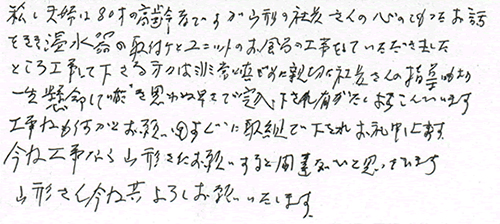 私し夫婦は80才の高齢者ですが山形の社長さんの心のこもったお話
をきき温水器の取付けとユニットのお風呂の工事をしていただきました
ところ工事して下さる方は非常に真面目で親切に社長さんの指導の
一生懸命して 思わぬ早さで完了下され有がたくよろこんでいます
工事ね お願い すぐに取組で下されお礼申し上ます
今ね工事なら山形さんにお願いすると間違ないと思っています
山形さん今ね共よろしくお願いいたします